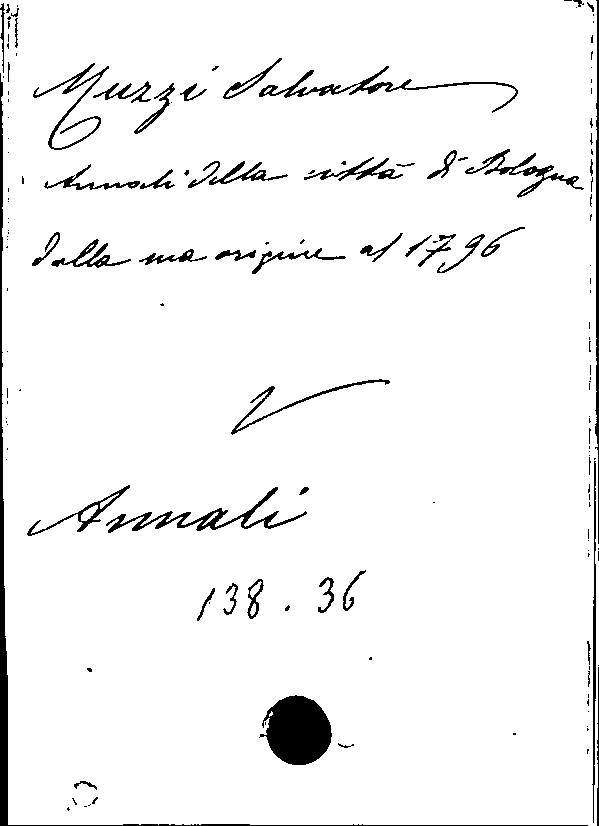 Muzzi Salvatore
Annali della città di Bologna
dalla sua origine al 1796
V
Annali
138.36